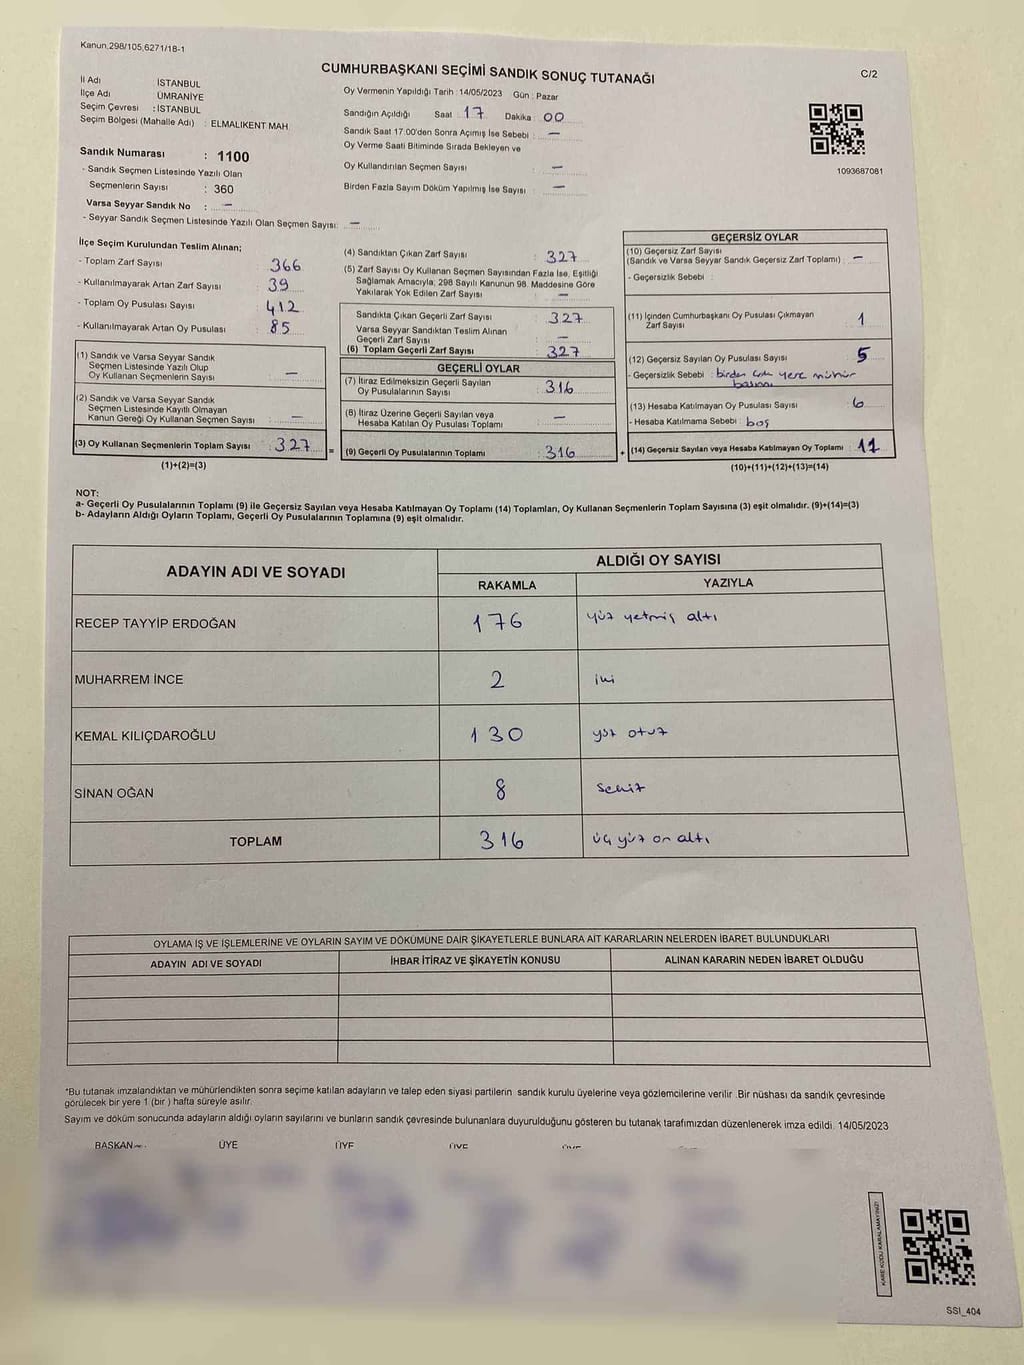 Kanun,298/105,6271/18-1
CUMHURBAŞKANI SEÇİMİ SANDIK SONUÇ TUTANAĞI
C/2
İl Adı İSTANBUL
İlçe Adı ÜMRANİYE
Seçim Çevresi : İSTANBUL
Seçim Bölgesi (Mahalle Adı) : ELMALIKENT MAH.
Sandık Numarası : 1100
- Sandık Seçmen Listesinde Yazılı Olan
Seçmenlerin Sayısı : 360
Varsa Seyyar Sandık No : —
- Seyyar Sandık Seçmen Listesinde Yazılı Olan Seçmen Sayısı: —
Oy Vermenin Yapıldığı Tarih : 14/05/2023 Gün : Pazar
Sandığın Açıldığı Saat : 17 Dakika : 00
Sandık Saat 17:00'den Sonra Açımış İse Sebebi : —
Oy Verme Saati Bitiminde Sırada Bekleyen ve
Oy Kullandırılan Seçmen Sayısı : —
Birden Fazla Sayım Döküm Yapılmış İse Sayısı : —
1093687081
İlçe Seçim Kurulundan Teslim Alınan;
- Toplam Zarf Sayısı : 366
- Kullanılmayarak Artan Zarf Sayısı : 39
- Toplam Oy Pusulası Sayısı : 412
- Kullanılmayarak Artan Oy Pusulası : 85
(1) Sandık ve Varsa Seyyar Sandık
Seçmen Listesinde Yazılı Olup
Oy Kullanan Seçmenlerin Sayısı : —
(2) Sandık ve Varsa Seyyar Sandık
Seçmen Listesinde Kayıtlı Olmayan
Kanun Gereği Oy Kullanan Seçmen Sayısı : —
(3) Oy Kullanan Seçmenlerin Toplam Sayısı : 327 =
(1)+(2)=(3)
(4) Sandıktan Çıkan Zarf Sayısı : 327
(5) Zarf Sayısı Oy Kullanan Seçmen Sayısından Fazla İse, Eşitliği
Sağlamak Amacıyla; 298 Sayılı Kanunun 98. Maddesine Göre
Yakılarak Yok Edilen Zarf Sayısı : —
Sandıkta Çıkan Geçerli Zarf Sayısı : 327
Varsa Seyyar Sandıktan Teslim Alınan
Geçerli Zarf Sayısı : —
(6) Toplam Geçerli Zarf Sayısı : 327
GEÇERLİ OYLAR
(7) İtiraz Edilmeksizin Geçerli Sayılan
Oy Pusulalarının Sayısı : 316
(8) İtiraz Üzerine Geçerli Sayılan veya
Hesaba Katılan Oy Pusulası Toplamı : —
(9) Geçerli Oy Pusulalarının Toplamı : 316 +
GEÇERSİZ OYLAR
(10) Geçersiz Zarf Sayısı
(Sandık ve Varsa Seyyar Sandık Geçersiz Zarf Toplamı) : —
- Geçersizlik Sebebi :
(11) İçinden Cumhurbaşkanı Oy Pusulası Çıkmayan
Zarf Sayısı : 1
(12) Geçersiz Sayılan Oy Pusulası Sayısı : 5
- Geçersizlik Sebebi : birden çok yere mühür
basımı
(13) Hesaba Katılmayan Oy Pusulası Sayısı : 6
- Hesaba Katılmama Sebebi : boş
(14) Geçersiz Sayılan veya Hesaba Katılmayan Oy Toplamı : 11
(10)+(11)+(12)+(13)=(14)
NOT:
a- Geçerli Oy Pusulalarının Toplamı (9) ile Geçersiz Sayılan veya Hesaba Katılmayan Oy Toplamı (14) Toplamları, Oy Kullanan Seçmenlerin Toplam Sayısına (3) eşit olmalıdır. (9)+(14)=(3)
b- Adayların Aldığı Oyların Toplamı, Geçerli Oy Pusulalarının Toplamına (9) eşit olmalıdır.
ADAYIN ADI VE SOYADI
ALDIĞI OY SAYISI
RAKAMLA YAZIYLA
RECEP TAYYİP ERDOĞAN 176 yüz yetmiş altı
MUHARREM İNCE 2 iki
KEMAL KILIÇDAROĞLU 130 yüz otuz
SİNAN OĞAN 8 sekiz
TOPLAM 316 üç yüz on altı
OYLAMA İŞ VE İŞLEMLERİNE VE OYLARIN SAYIM VE DÖKÜMÜNE DAİR ŞİKAYETLERLE BUNLARA AİT KARARLARIN NELERDEN İBARET BULUNDUKLARI
ADAYIN ADI VE SOYADI İHBAR İTİRAZ VE ŞİKAYETİN KONUSU ALINAN KARARIN NEDEN İBARET OLDUĞU
*Bu tutanak imzalandıktan ve mühürlendikten sonra seçime katılan adayların ve talep eden siyasi partilerin sandık kurulu üyelerine veya gözlemcilerine verilir .Bir nüshası da sandık çevresinde
görülecek bir yere 1 (bir ) hafta süreyle asılır.
Sayım ve döküm sonucunda adayların aldığı oyların sayılarını ve bunların sandık çevresinde bulunanlara duyurulduğunu gösteren bu tutanak tarafımızdan düzenlenerek imza edildi. 14/05/2023
BAŞKAN ÜYE ÜYE ÜYE
KARE KODU KARALAMAYINIZ!
SSI_404